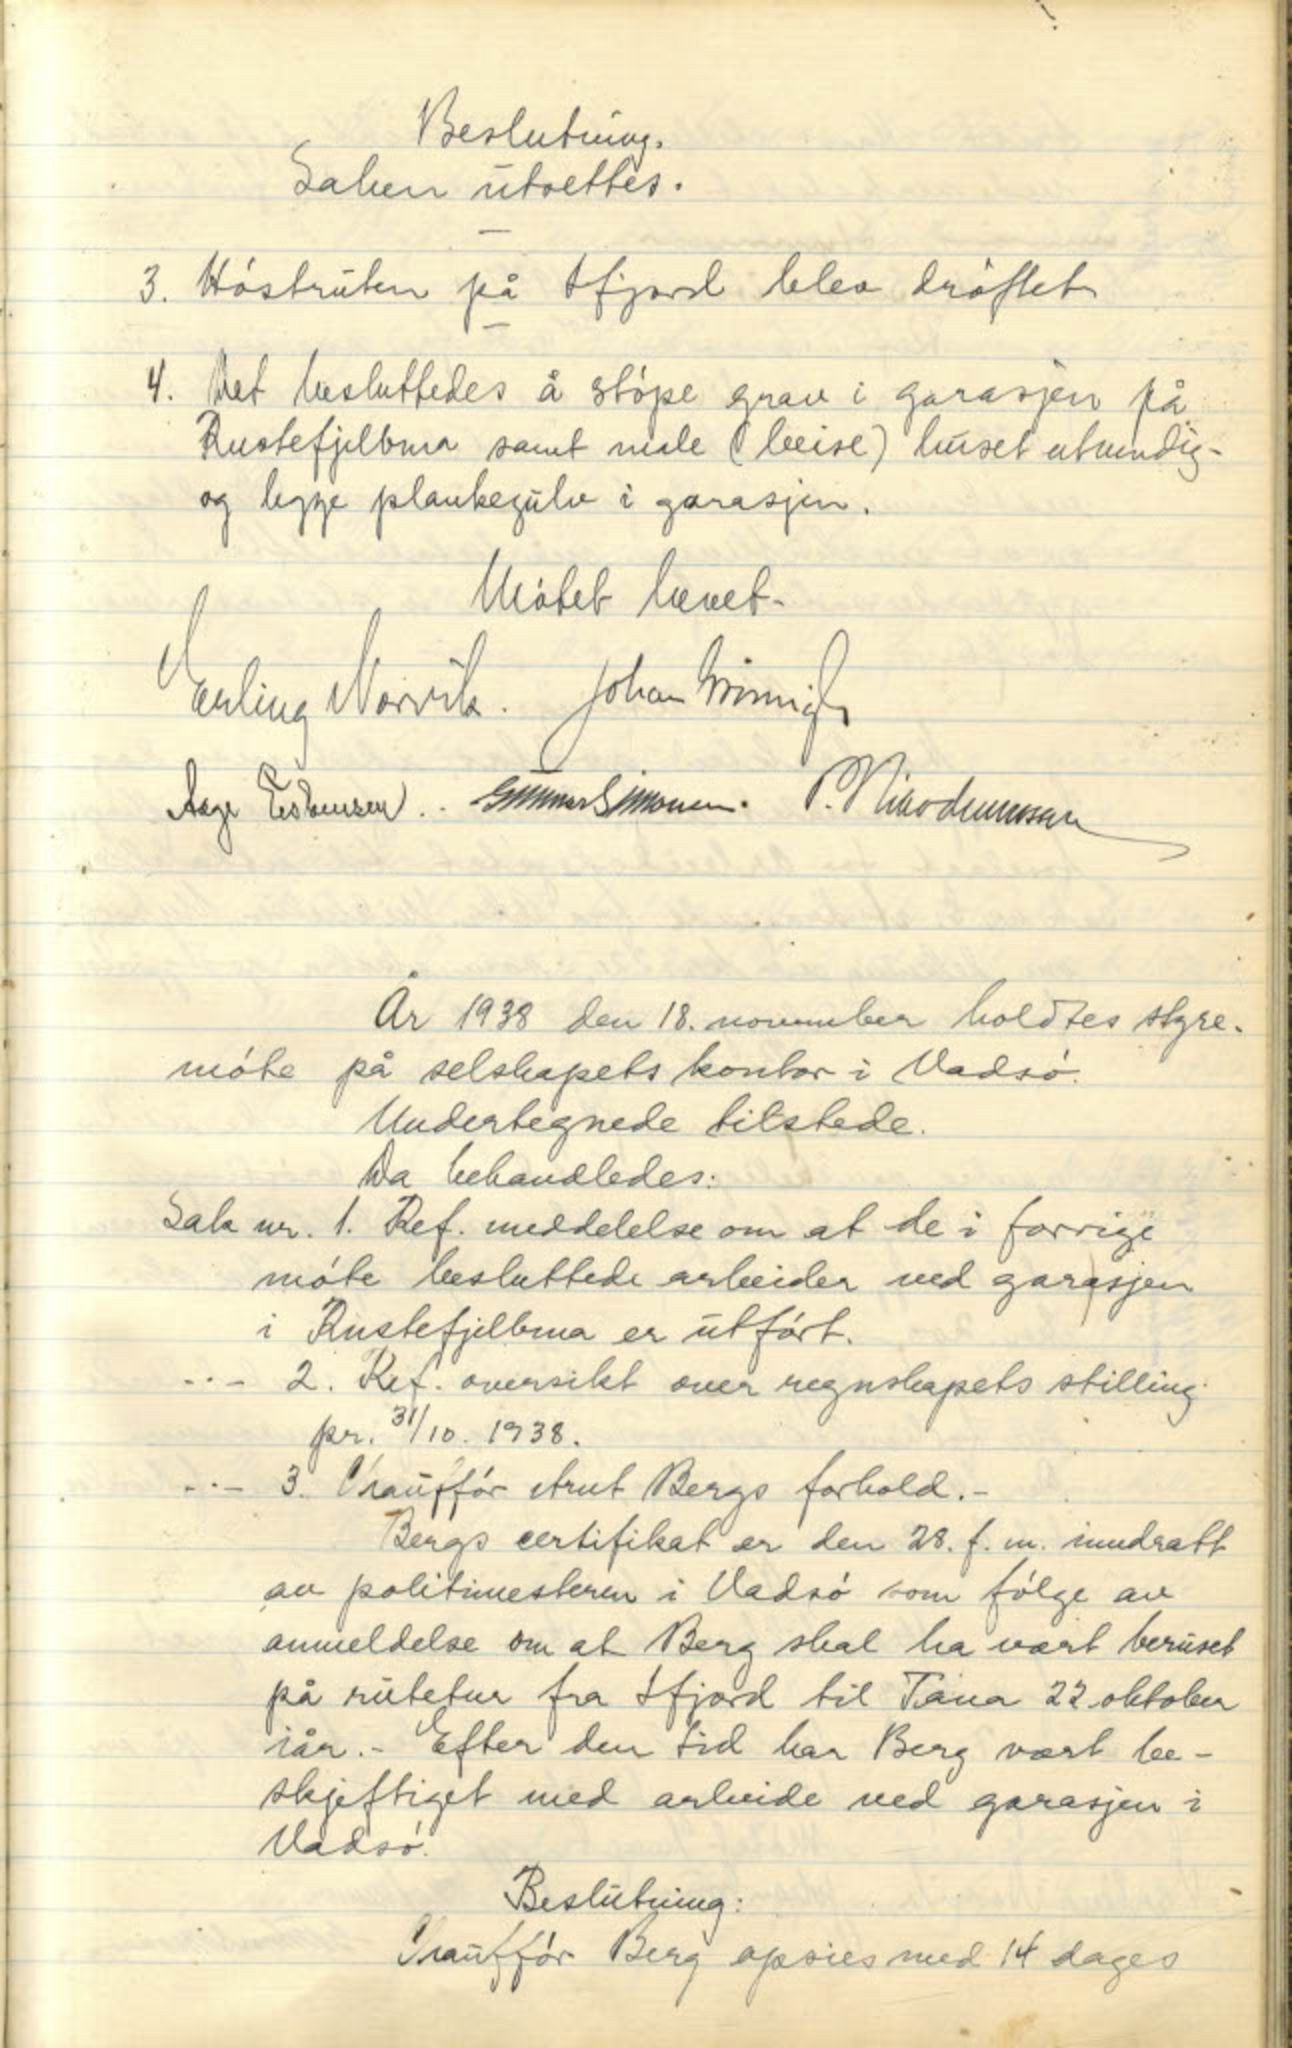 Beslutning.
Saken utsettes.
3. Höstruten på Ifjord blev dröftet
4. Det besluttedes å stöpe grav i garasjen på
Rustefjelbma samt male (beise) huset utvendig-
og legge plankegulv i garasjen.
Mötet hevet-
Erling Norvik. Johan
Aage Esbensen. Gunnar Simonsen. P. Nikodemussen
År 1938 den 18. november holdtes styre-
möte på selskapets kontor i Vadsö.
Undertegnede tilstede.
Da behandledes:
Sak nr. 1. Ref. meddelelse om at de i forrige
möte besluttede arbeider ved garasjen
i Rustefjelbma er utfört.
-·- 2. Ref. oversikt over regnskapets stilling
pr. 31/10. 1938.
-·- 3. Chaufför Arnt Bergs forhold.-
Bergs certifikat er den 28. f. m. inndratt
av politimesteren i Vadsö som fölge av
anmeldelse om at Berg skal ha vært beruset
på rutetur fra Ifjord til Tana 22 oktober
iår.- Efter den tid har Berg vært be-
skjeftiget med arbeide ved garasjen i
Vadsö.
Beslutning:
Chaufför Berg opsies med 14 dages